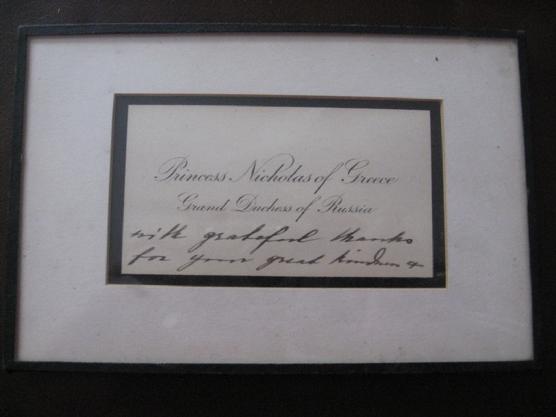 Princess Nicholas of Greece
Grand Duchess of Russia
with grateful thanks
for your great kindness &